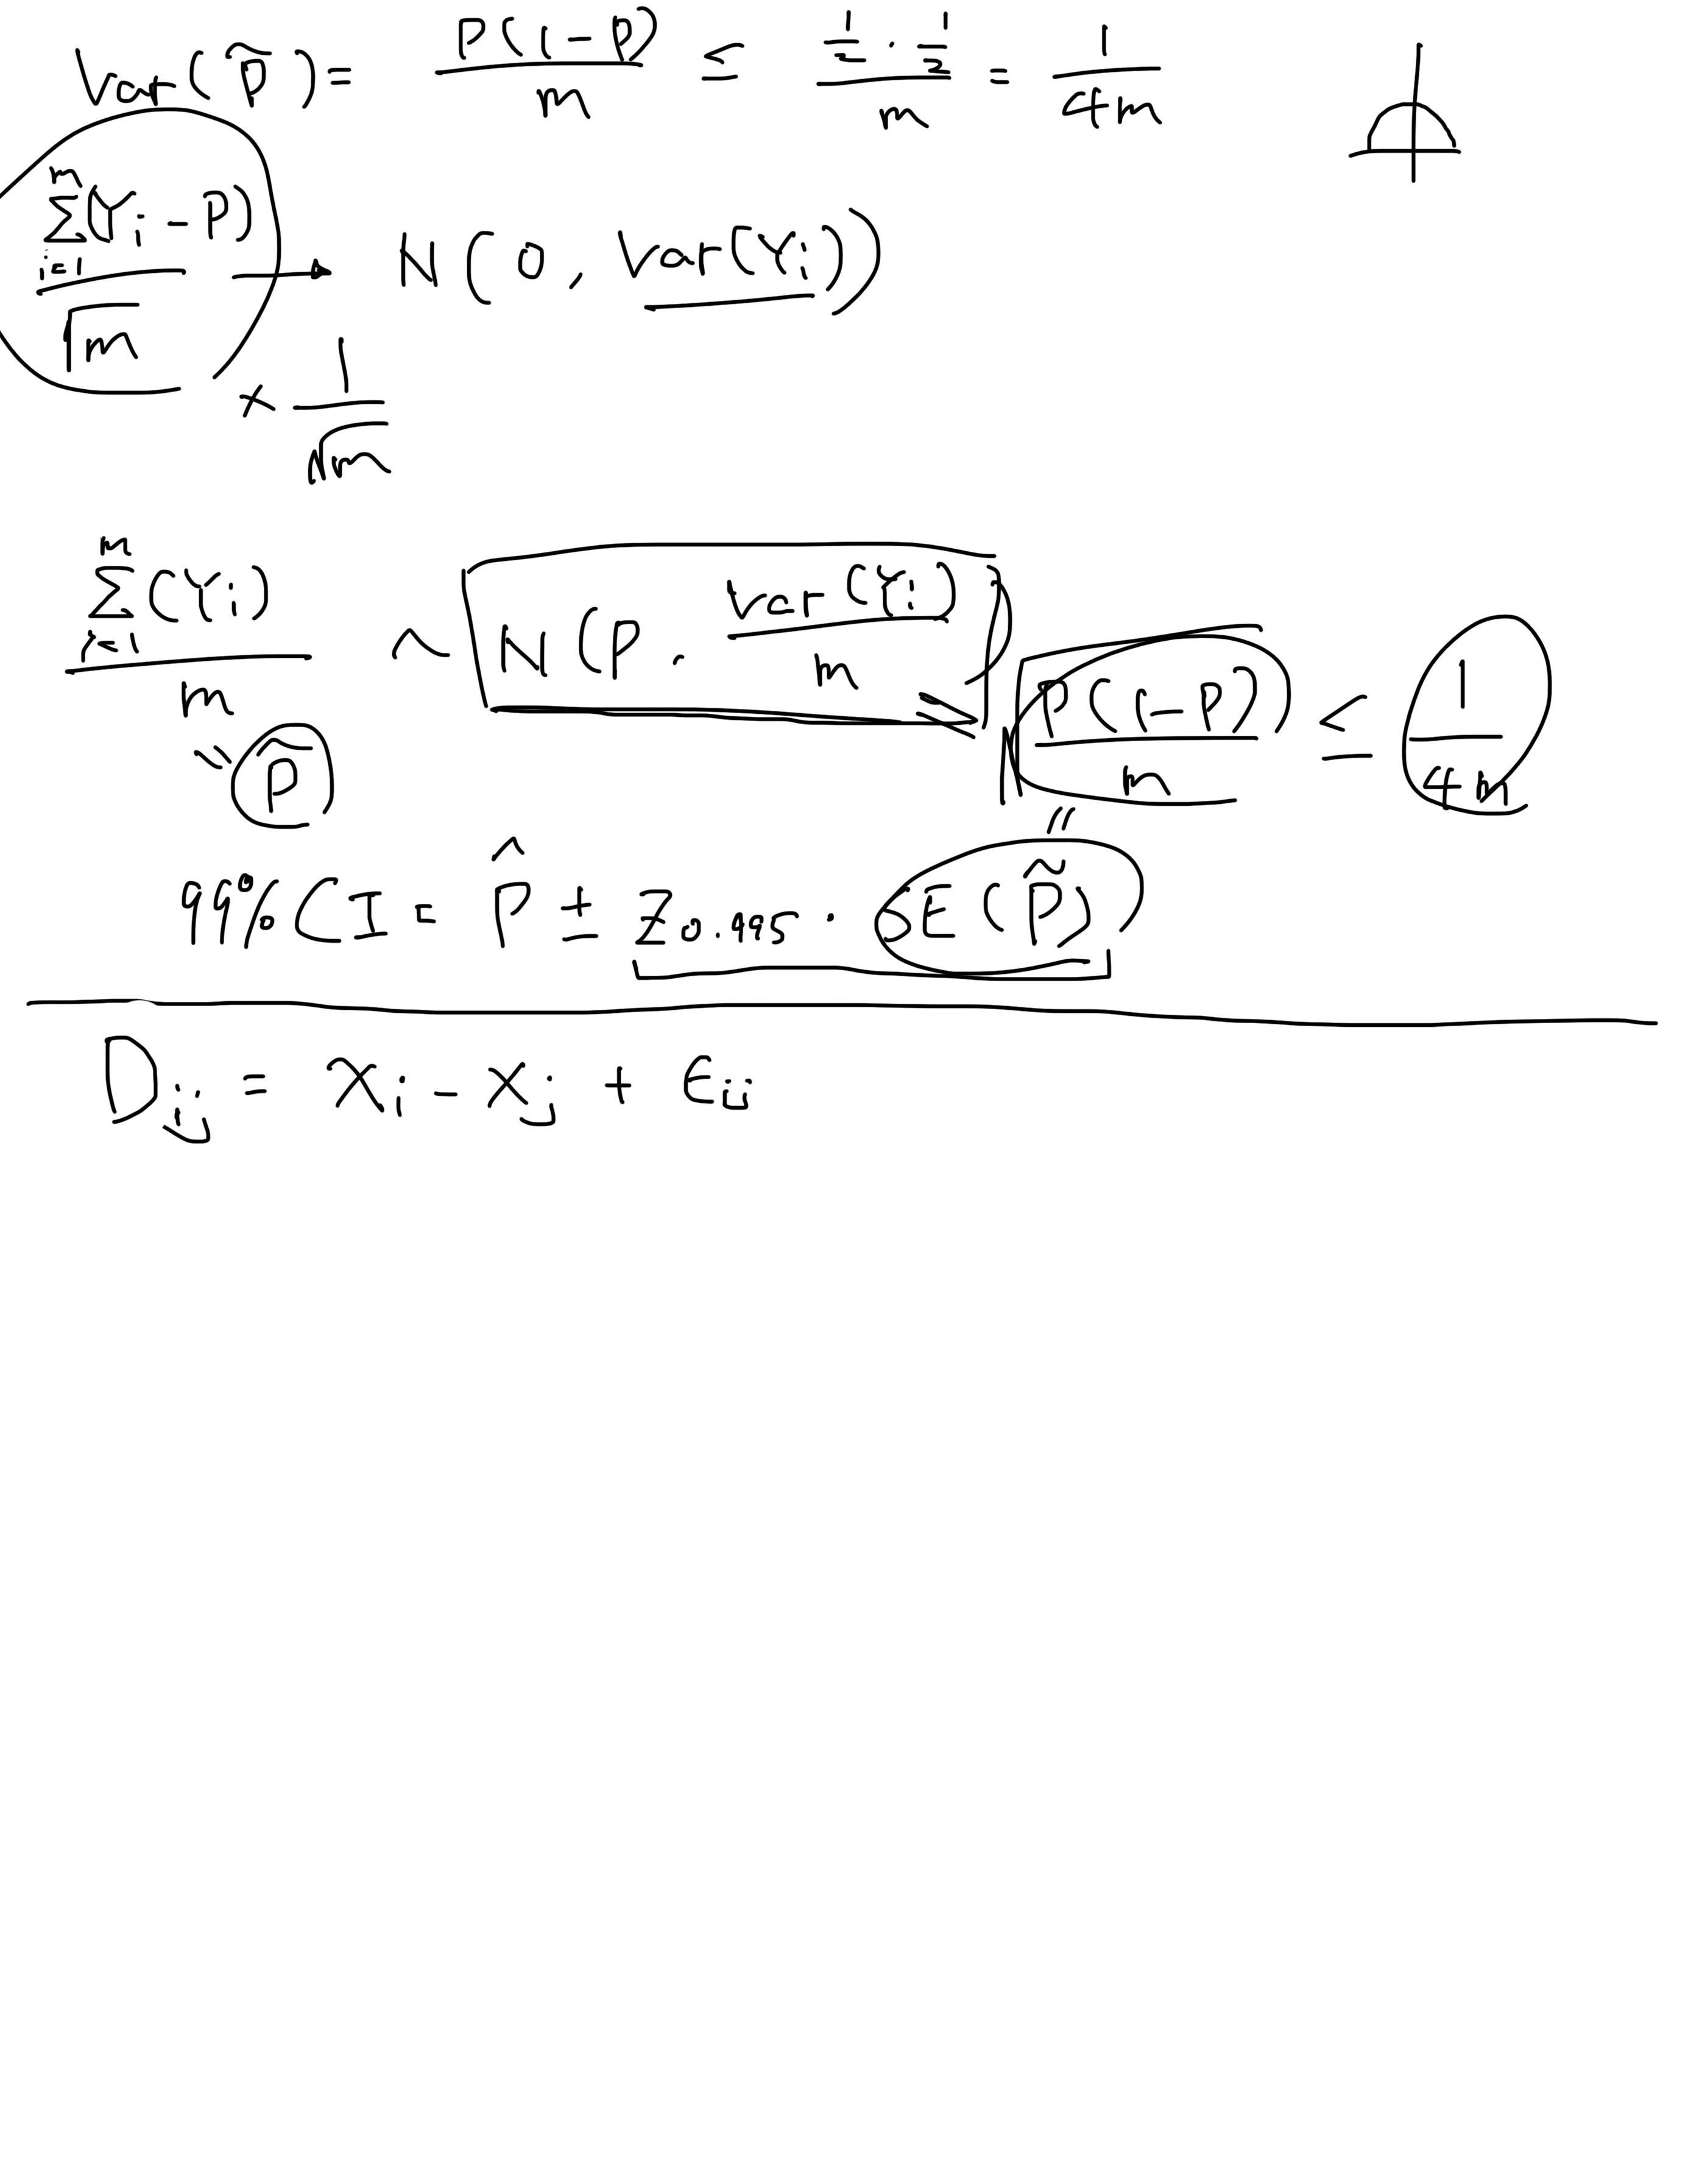 Var(p̃) = P(1-P)/n ≤ 1/2 · 1/2 / n = 1/4n
n∑i=1(Yi - P) / √n → N(0, Var(Yi))
× 1/√n
n∑i=1(Yi) / n ~ N(P, Var(Yi)/n) √P(1-P)/n ≤ 1/4n
" p̃ "
99% CI = p̂ ± Z0.995 · SE(p̃)
Dij = Xi - Xj + Єij